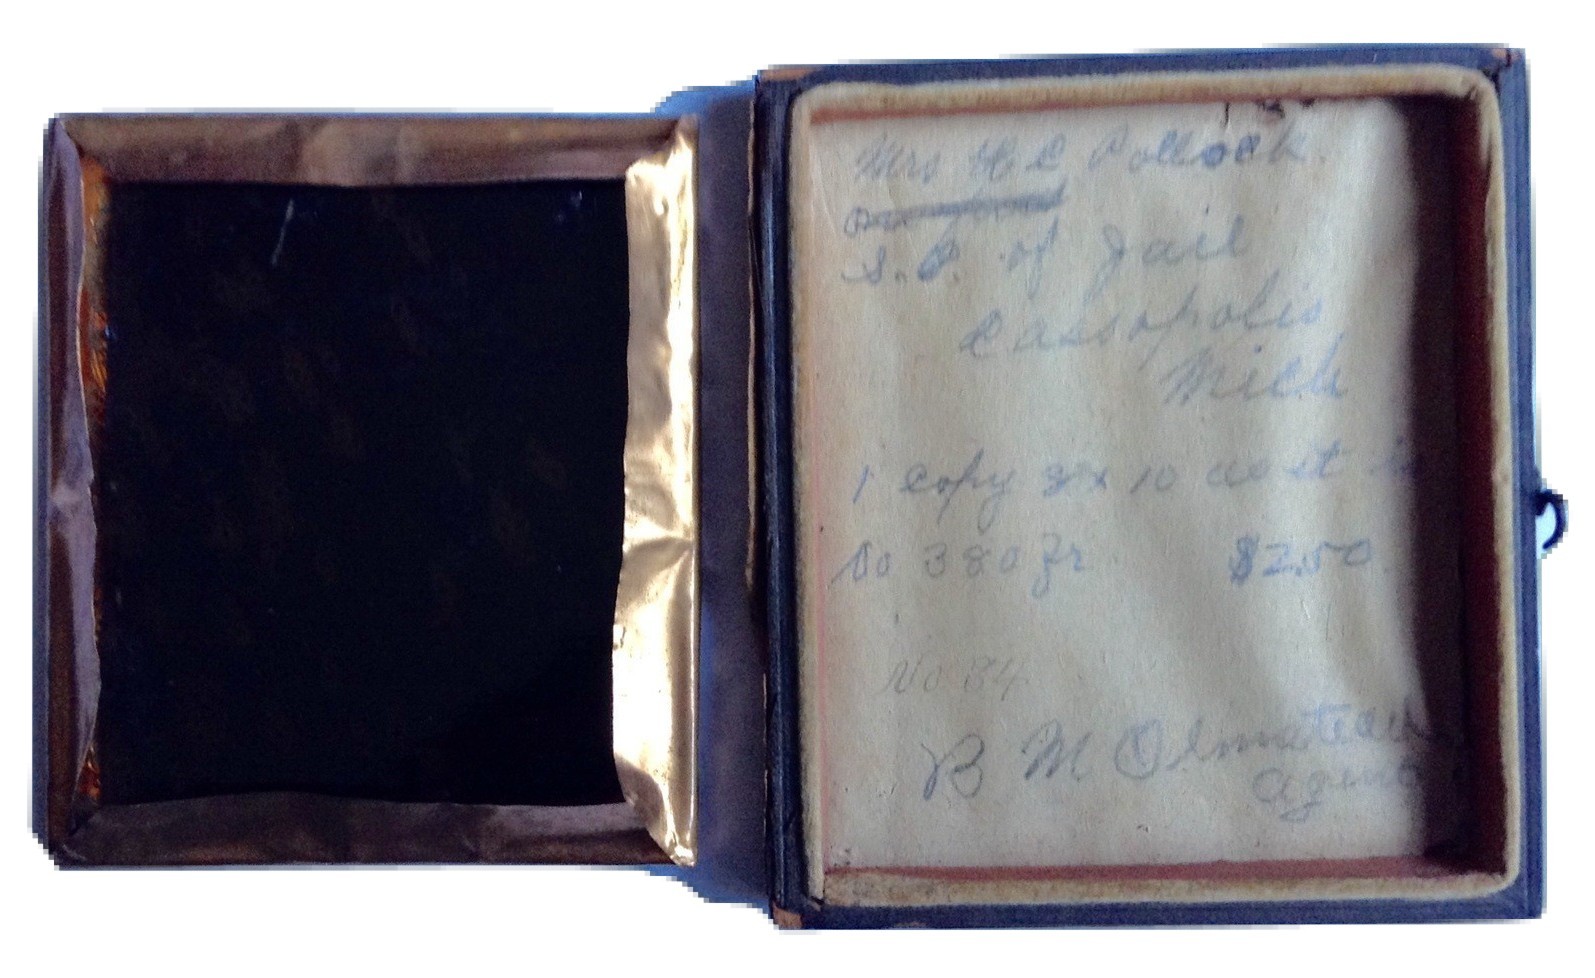 Mrs H C Pollock.
S. E. of Jail
Cassopolis
Mich
1 copy 8x10
No 380 Fr $2.50
No 34
B M Olmstead
Agent